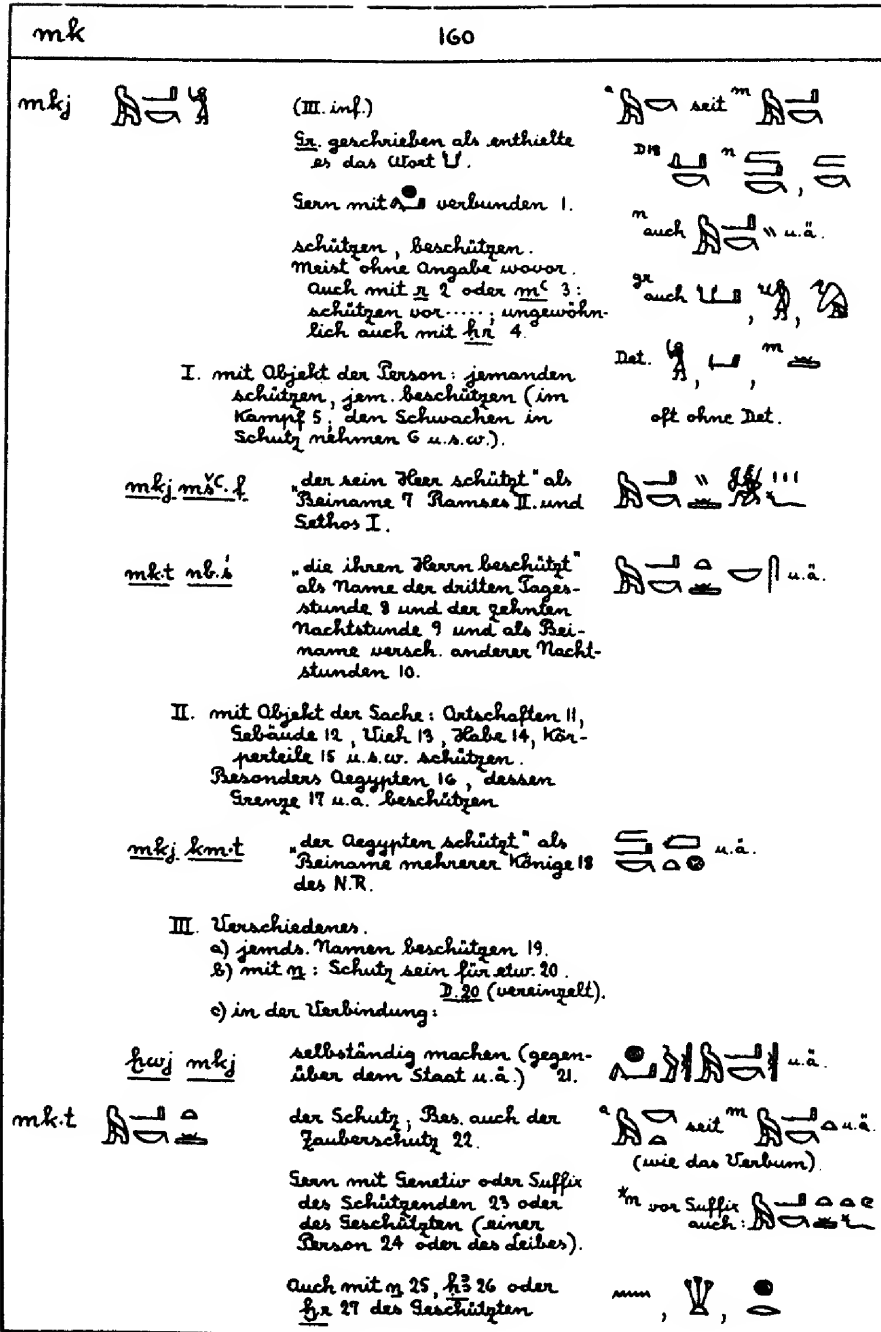 mk 160
mkj (III. inf.) seit m
Gr. geschrieben als enthielte
es das Wort
D18 n ,
Gern mit verbunden 1.
n auch u.ä.
schützen, beschützen.
Meist ohne Angabe wovor.
Auch mit r 2 oder mꜥ 3:
gr auch , ,
schützen vor.....; ungewöhn-
lich auch mit ḥr 4.
Det. , , m
I. mit Objekt der Person: jemanden
schützen, jem. beschützen (im
Kampf 5, den Schwachen in
oft ohne Det.
Schutz nehmen 6 u.s.w.).
mkj mšꜥ.f „der sein Heer schützt" als
Beiname 7 Ramses II. und
Sethos I.
mk.t nb.ś „die ihren Herrn beschützt" u.ä.
als Name der dritten Tages-
stunde 8 und der zehnten
Nachtstunde 9 und als Bei-
name versch. anderer Nacht-
stunden 10.
II. mit Objekt der Sache: Ortschaften 11,
Gebäude 12, Vieh 13, Habe 14, Kör-
perteile 15 u.s.w. schützen.
Besonders Aegypten 16, dessen
Grenze 17 u.a. beschützen
mkj km.t „der Aegypten schützt" als u.ä.
Beiname mehrerer Könige 18
des N.R.
III. Verschiedenes.
a) jemds. Namen beschützen 19.
b) mit n: Schutz sein für etw. 20.
D.20 (vereinzelt).
c) in der Verbindung:
ḫwj mkj selbständig machen (gegen- u.ä.
über dem Staat u.ä.) 21.
mk.t der Schutz; Bes. auch der a seit m u.ä.
Zauberschutz 22. (wie das Verbum).
Gern mit Genetiv oder Suffix
des Schützenden 23 oder *m vor Suffix
des Geschützten (einer auch:
Person 24 oder des Leibes).
Auch mit n 25, ḥꜣ 26 oder , ,
ḫr 27 des Geschützten